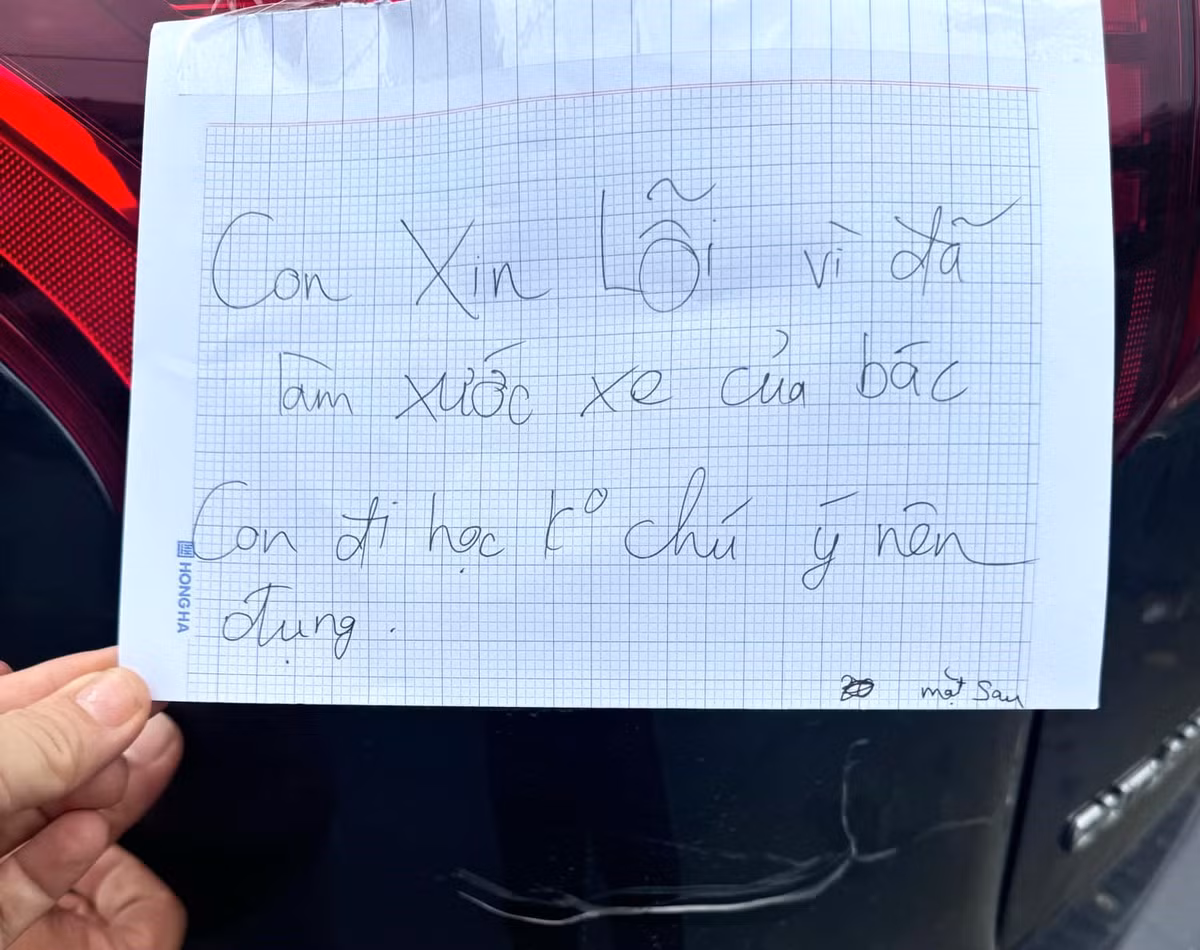 Con Xin Lỗi vì đã
làm xước xe của bác
Con đi học k° chú ý nên
đụng.
mặt sau
HONG HA